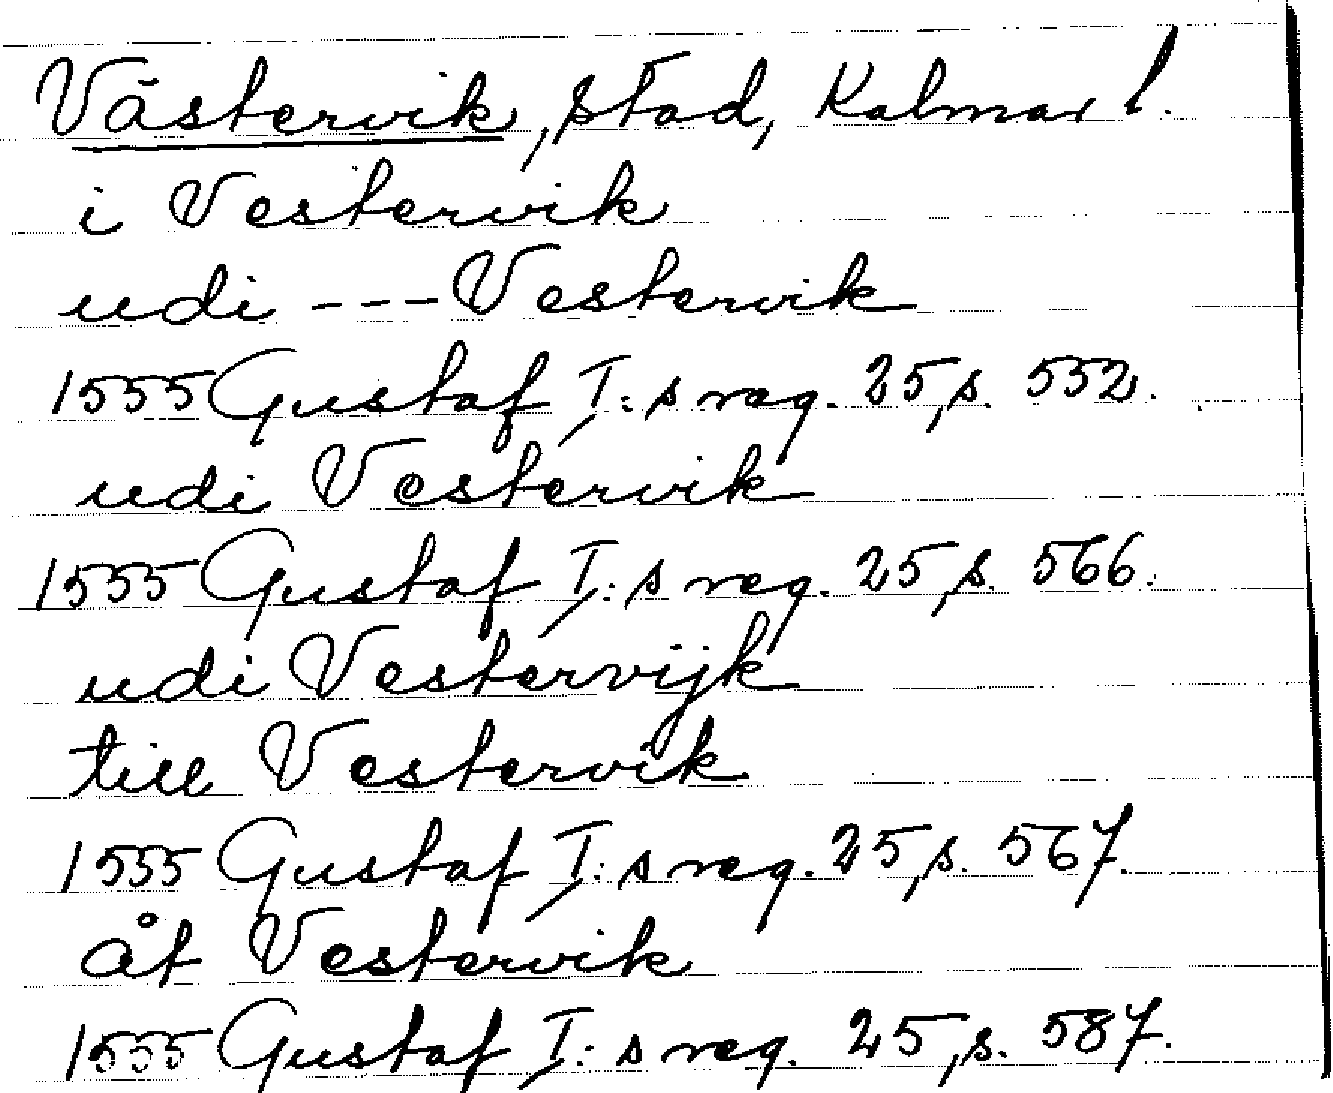 Västervik, stad, Kalmar l.
i Vestervik
udi --- Vestervik
1555 Gustaf I:s reg. 25, s. 552.
udi Vestervik
1555 Gustaf I:s reg. 25, s. 566.
udi Vestervijk
till Vestervik
1555 Gustaf I:s reg. 25, s. 567.
åt Vestervik
1555 Gustaf I:s reg. 25, s. 587.